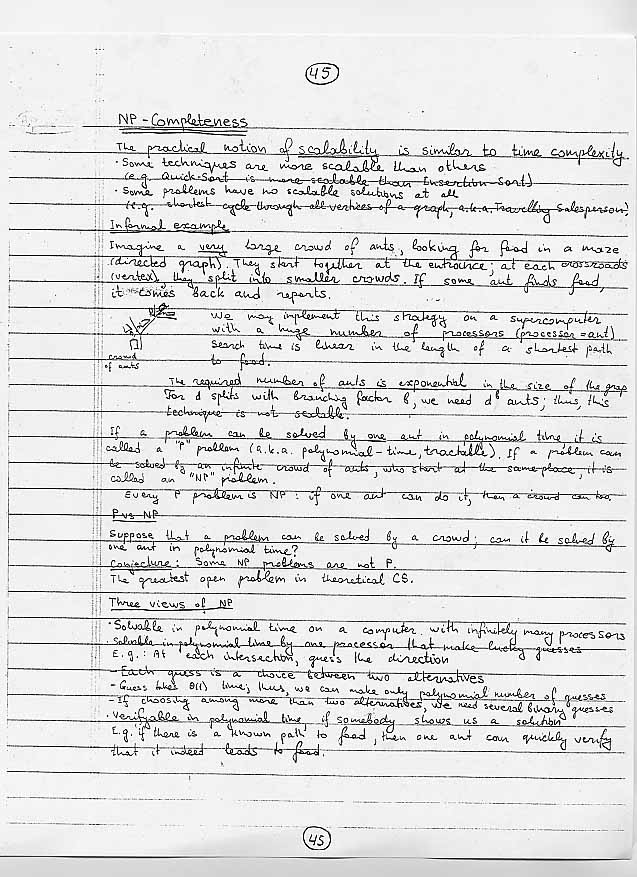 45
NP-Completeness
The practical notion of scalability is similar to time complexity.
· Some techniques are more scalable than others
(e.g. Quick-Sort is more scalable than Insertion-Sort)
· Some problems have no scalable solutions at all
(e.g. shortest cycle through all vertices of a graph, a.k.a. Travelling Salesperson)
Informal example
Imagine a very large crowd of ants, looking for food in a maze
(directed graph). They start together at the entrance; at each crossroads
(vertex), they split into smaller crowds. If some ant finds food,
it comes back and reports.
We may implement this strategy on a supercomputer
with a huge number of processors (processor = ant)
Search time is linear in the length of a shortest path
to food.
crowd
of ants
The required number of ants is exponential in the size of the grap
For d splits with branching factor b, we need d^b ants; thus, this
technique is not scalable.
If a problem can be solved by one ant in polynomial time, it is
called a "P" problem (a.k.a. polynomial-time, tractable). If a problem can
be solved by an infinite crowd of ants, who start at the same place, it is
called an "NP" problem.
Every P problem is NP: if one ant can do it, then a crowd can too.
P vs NP
Suppose that a problem can be solved by a crowd; can it be solved by
one ant in polynomial time?
Conjecture: Some NP problems are not P.
The greatest open problem in theoretical CS.
Three views of NP
· Solvable in polynomial time on a computer with infinitely many processors
· Solvable in polynomial time by one processor that make lucky guesses
E.g.: At each intersection, guess the direction
- Each guess is a choice between two alternatives
- Guess takes θ(1) time; thus, we can make only polynomial number of guesses
- If choosing among more than two alternatives, we need several binary guesses
· Verifyable in polynomial time if somebody shows us a solution
E.g. if there is a known path to food, then one ant can quickly verify
that it indeed leads to food.
45